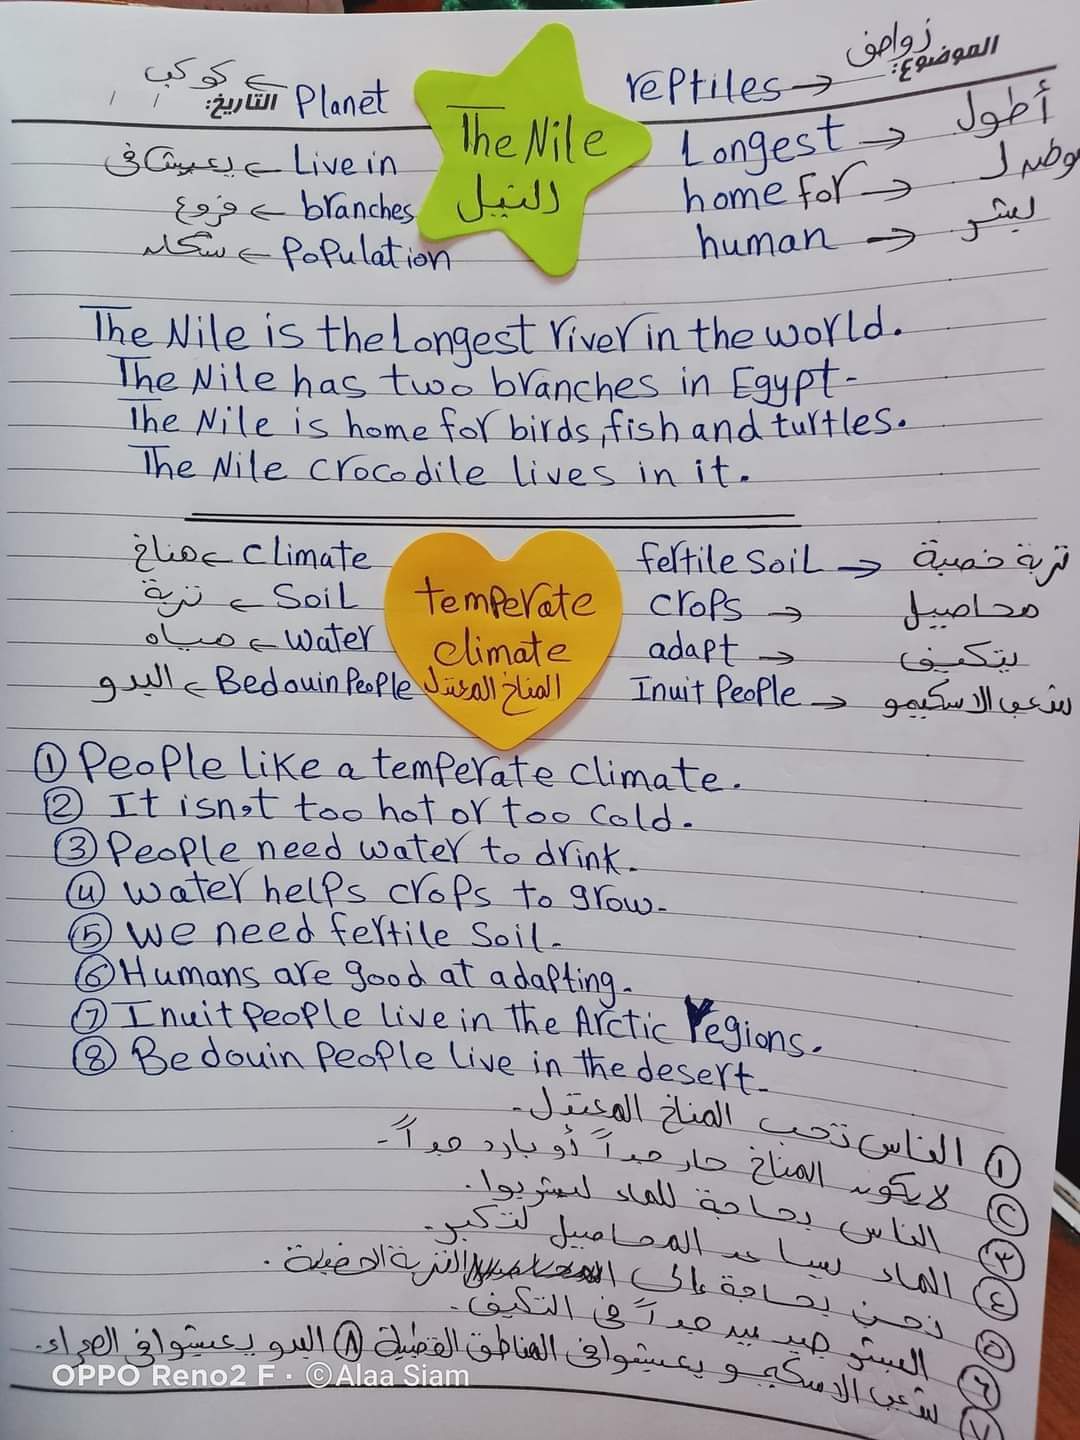 الموضوع: زواحف
reptiles →
Planet ← كوكب
التاريخ: / /
The Nile
النيل
Longest → أطول
Live in ← يعيش فى
home for → موطن لـ
branches ← فروع
human → بشر
Population ← سكان
The Nile is the Longest river in the world.
The Nile has two branches in Egypt-
The Nile is home for birds, fish and turtles.
The Nile crocodile lives in it.
Climate ← مناخ
fertile soil → تربة خصبة
temperate
climate
المناخ المعتدل
Soil ← تربة
crops → محاصيل
water ← مياه
adapt → يتكيف
Bedouin People ← البدو
Inuit People → شعب الاسكيمو
① People like a temperate climate.
② It isn't too hot or too cold.
③ People need water to drink.
④ water helps crops to grow-
⑤ we need fertile soil-
⑥ Humans are good at adapting-
⑦ Inuit people live in the Arctic regions.
⑧ Bedouin people live in the desert-
① الناس تحب المناخ المعتدل-
② لا يكون المناخ حار جداً أو بارد جداً-
③ الناس بحاجة للماء ليشربوا.
④ الماء يساعد المحاصيل لتكبر.
⑤ نحن بحاجة إلى التربة الخصبة.
⑥ البشر جيدين جداً فى التكيف-
⑦ شعب الاسكيمو يعيشوا فى المناطق القطبية ⑧ البدو يعيشوا فى الصحراء.
OPPO Reno2 F · ©Alaa Siam